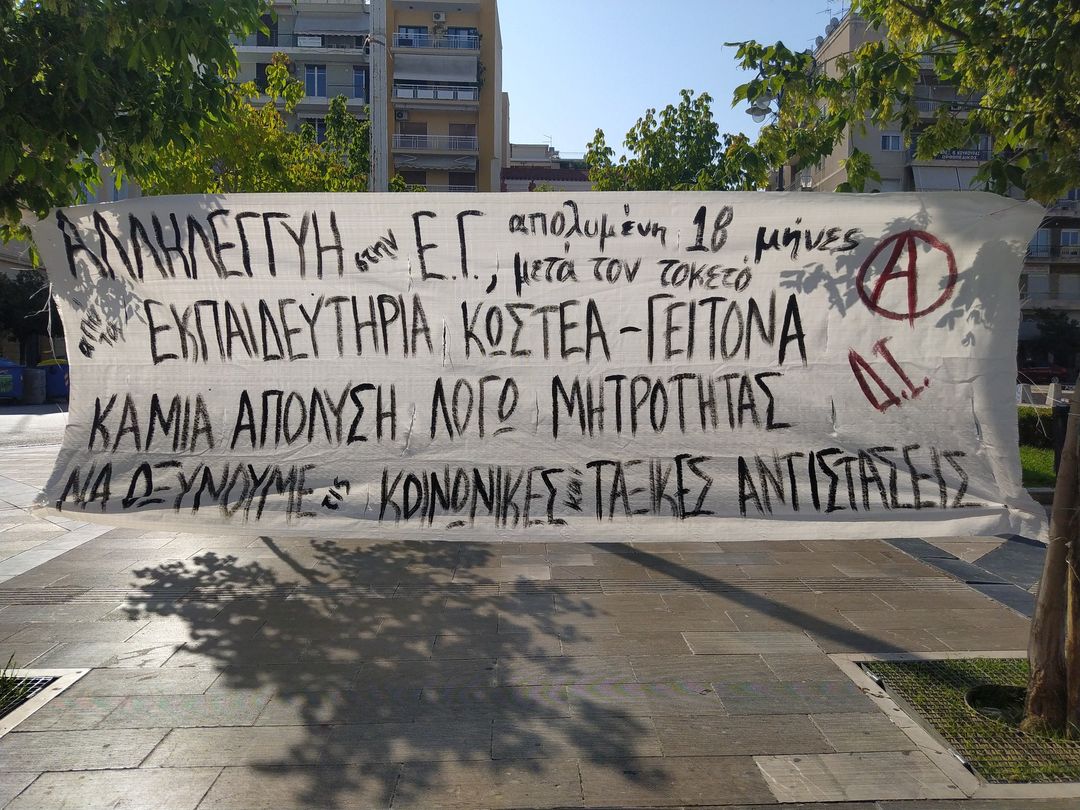 ΑΛΛΗΛΕΓΓΥΗ στην Ε.Γ., απολυμένη 18 μήνες
μετά τον τοκετό
από τα ΕΚΠΑΙΔΕΥΤΗΡΙΑ ΚΩΣΤΕΑ-ΓΕΙΤΟΝΑ
ΚΑΜΙΑ ΑΠΟΛΥΣΗ ΛΟΓΩ ΜΗΤΡΟΤΗΤΑΣ
ΝΑ ΟΞΥΝΟΥΜΕ τις ΚΟΙΝΩΝΙΚΕΣ και ΤΑΞΙΚΕΣ ΑΝΤΙΣΤΑΣΕΙΣ
Α
Δ.Ι.